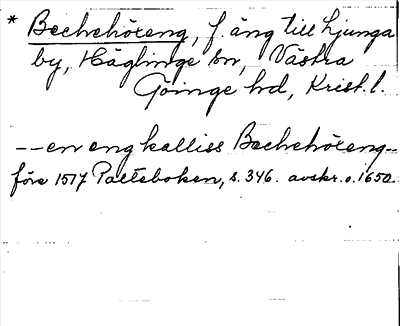 * Bechehöreng, f. äng till Ljunga
by, Häglinge sn, Västra
Göinge hd, Krist. l.
-- en eng kalliss Bechehöreng --
före 1517 Palteboken, s. 346. avskr. o. 1650.